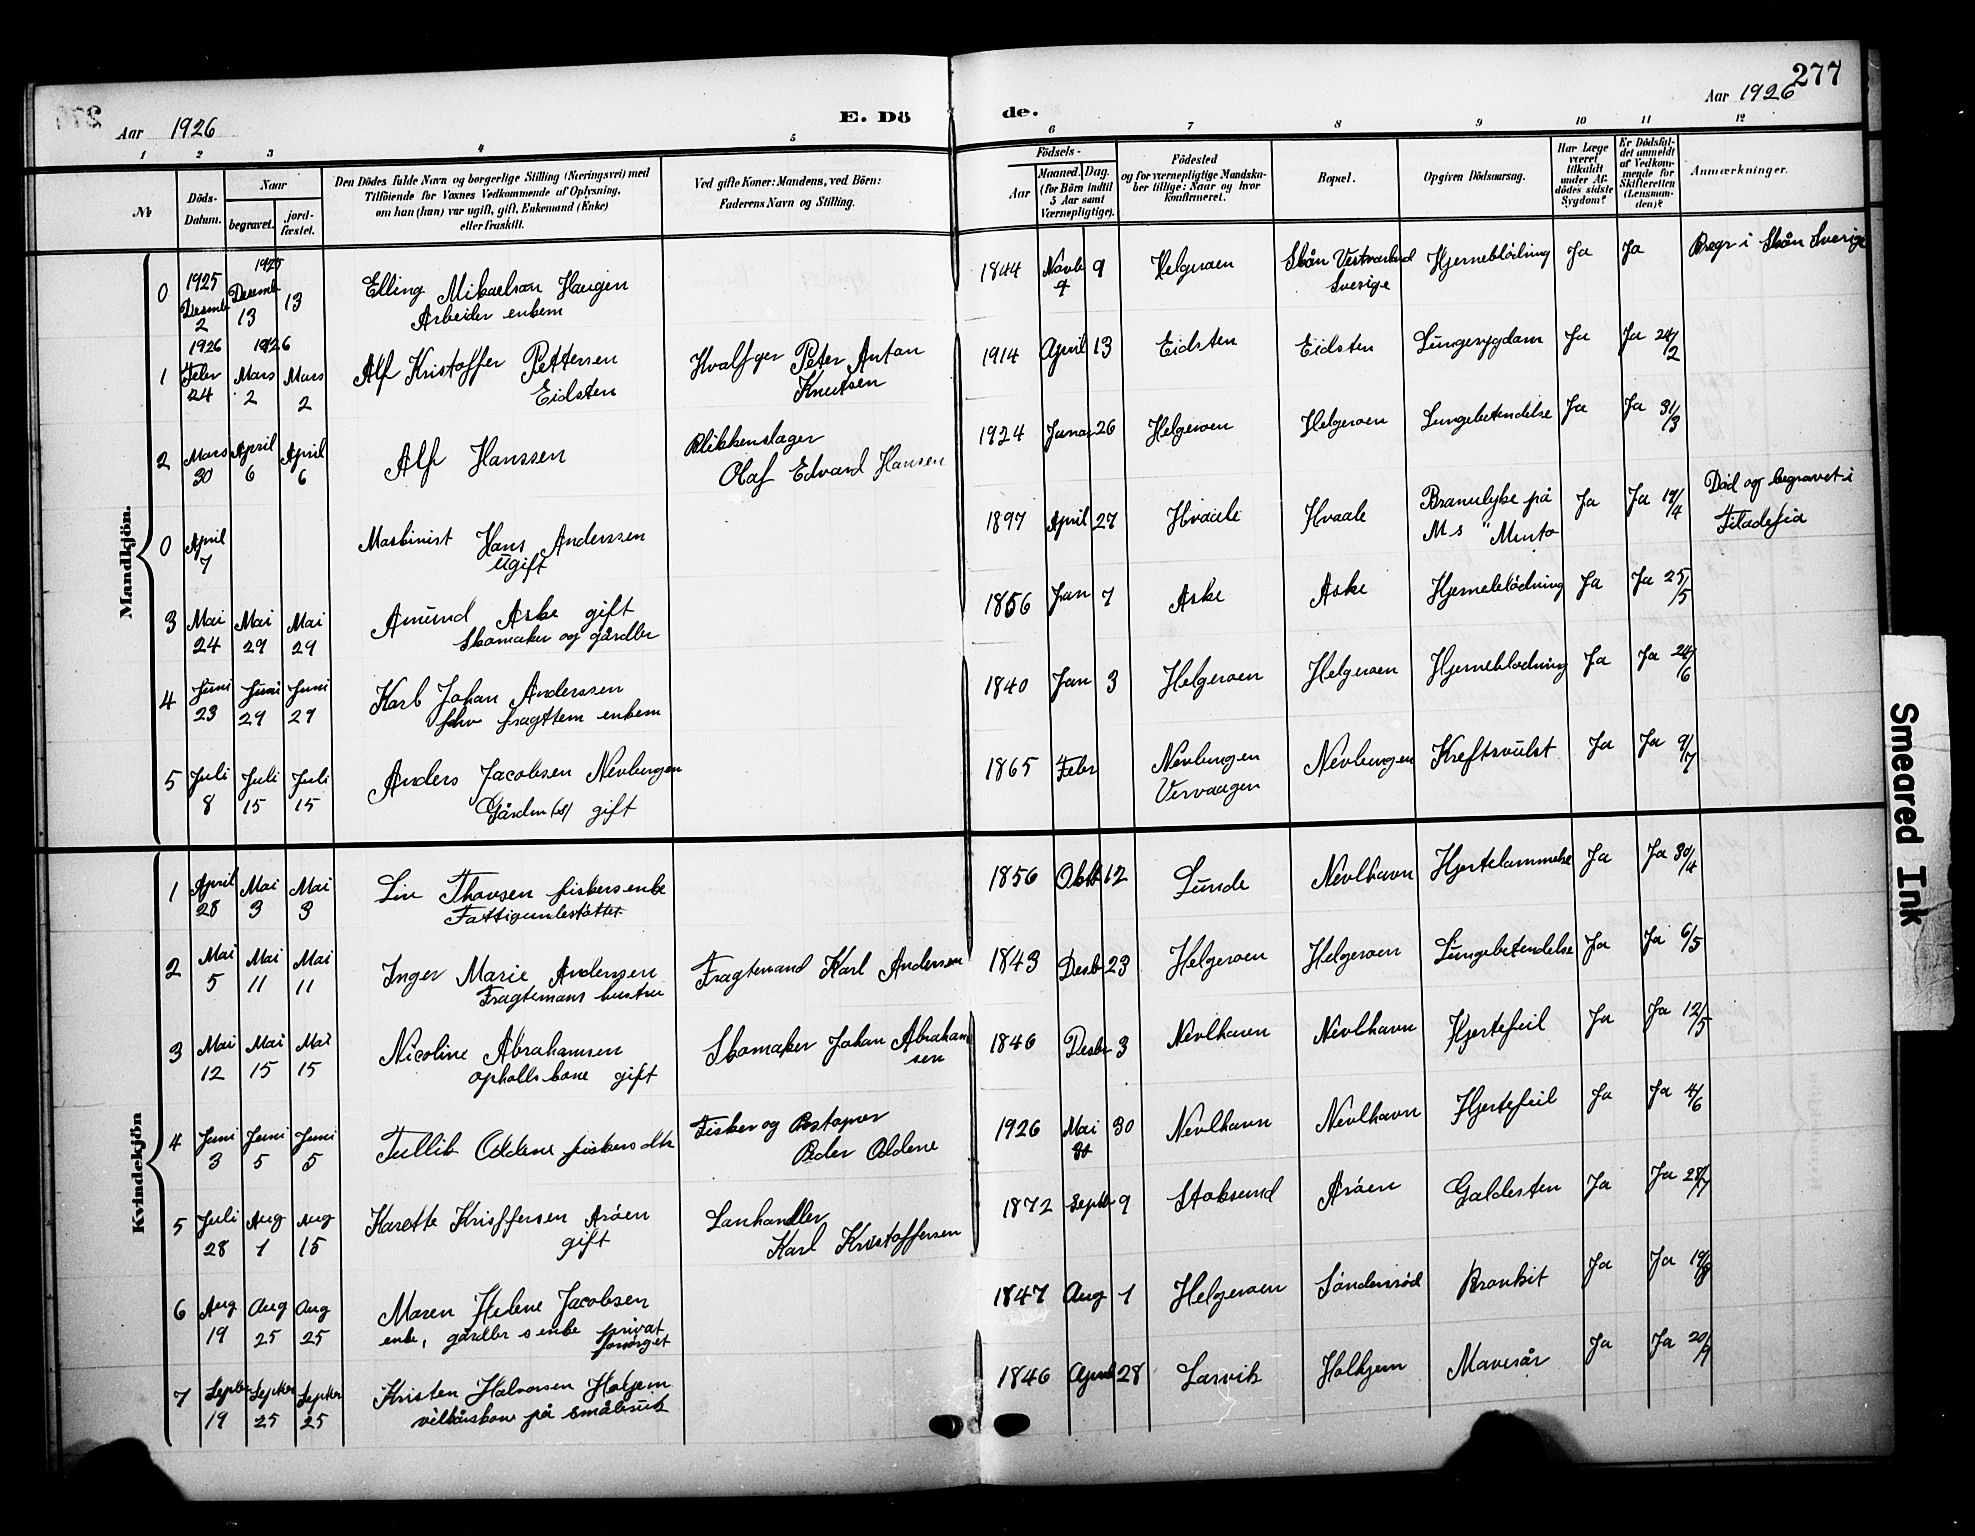 277
Aar 1926
E. Dö de.
Aar 1926
1 2 3 4 5 6 7 8 9 10 11 12
№
Döds-
Datum.
Naar
begravet.
jord-
fæstet.
Den Dödes fulde Navn og borgerlige Stilling (Næringsvei) med
Tilföiende for Voxnes Vedkommende af Oplysning,
om han (hun) var ugift, gift, Enkemand (Enke)
eller fraskilt.
Ved gifte Koner: Mandens, ved Börn:
Faderens Navn og Stilling.
Födsels-
Aar
Maaned. Dag.
(for Börn indtil
5 Aar samt
Værnepligtige).
Födested
og for værnepligtige Mandska-
ber tillige: Naar og hvor
konfirmeret.
Bopæl.
Opgiven Dödsaarsag.
Har Læge
været
tilkaldt
under Af-
dödes sidste
Sygdom?
Er Dödsfal-
det anmeldt
af Vedkom-
mende for
Skifteretten
(Lensman-
den)?
Anmærkninger.
Mandkjön.
0 1925 Desemb 2 1925 Desemb 13 13 Elling Mikaelsen Haugen
Arbeider enkem
1844 Novb 9 9 Helgeroen Skån Vestmarland
Sverige Hjerneblödning Ja Ja Begr i Skån Sverige
1 1926 Febr 24 1926 Mars 2 Mars 2 Alf Kristoffer Pettersen
Eidsten
Hvalfger Peter Anton
Knutsen
1914 April 13 Eidsten Eidsten Lungesygdom Ja Ja 24/2
2 Mars 30 April 6 April 6 Alf Hanssen
Blikkenslager
Olaf Edvard Hansen
1924 Januar 26 Helgeroen Helgeroen Lungebetendelse Ja Ja 31/3
0 April 7 Maskinist Hans Anderssen
Ugift
1897 April 27 Hvaale Hvaale Branulykke på
M s "Mento Ja Ja 19/4 Död og begravet i
Filadefia
3 Mai 24 Mai 29 Mai 29 Amund Aske gift
Skomaker og gårdbr
1856 Jan 7 Aske Aske Hjerneblödning Ja Ja 25/5
4 Juni 23 Juni 29 Juni 29 Karl Johan Anderssen
fhv fragttem enkem
1840 Jan 3 Helgeroen Helgeroen Hjerneblodning Ja Ja 24/6
5 Juli 8 Juli 15 Juli 15 Anders Jacobsen Nevlungen
gift
1865 Febr Nevlungen
Vervaagen Nevlungen Kreftsvulst Ja Ja 9/7
Kvindekjön
1 April 28 Mai 3 Mai 3 Liv Thovsen fiskers enke
Fattigunlestöttet
1856 Oktb 12 Lunde Nevlhavn Hjertelammelse Ja Ja 30/4
2 Mai 5 Mai 11 Mai 11 Inger Marie Anderssen
Fragtemans hustru
Fragtemand Karl Andersen
1843 Desb 23 Helgeroen Helgeroen Lungebetendelse Ja Ja 6/5
3 Mai 12 Mai 15 Mai 15 Nicoline Abrahamsen
opholdskone gift
Skomaker Johan Abraham
sen
1846 Desbr 3 Nevlhavn Nevlhavn Hjertefeil Ja Ja 12/5
4 Juni 3 Juni 5 Juni 5 Tullik Oddene fiskers dtr
Fisker og Postapner
Peder Oddene
1926 Mai 30 30 Nevlhavn Nevlhavn Hjertefeil Ja Ja 4/6
5 Juli 28 Aug 1 Aug 15 Karette Kristffersen Aröen
gift
Lanhandler
Karl Kristoffersen
1872 Septb 9 Stoksund Aröen Galdesten Ja Ja 28/7
6 Aug 19 Aug 25 Aug 25 Maren Helene Jacobsen
enke, gårdbr s enke privat
forsörget
1847 Aug 1 Helgeroen Söndersröd Bronkit Ja Ja 19/8
7 Septbr 19 Septbr 25 Septbr 25 Kristen Halvorsen Holjem
vilkårskone på småbruk
1846 April 28 Larvik Holhjem Mavesår Ja Ja 20/9
Smeared Ink